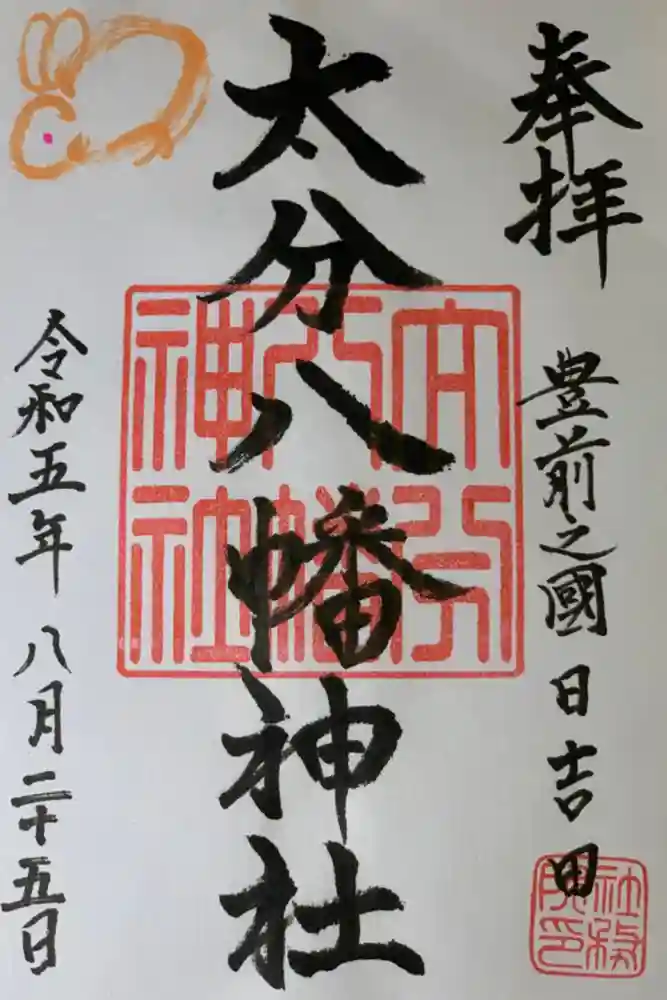 奉拝
豊前之國 日吉田
太分八幡神社
大分
八幡
神社
令和五年 八月二十五日
社務
所印